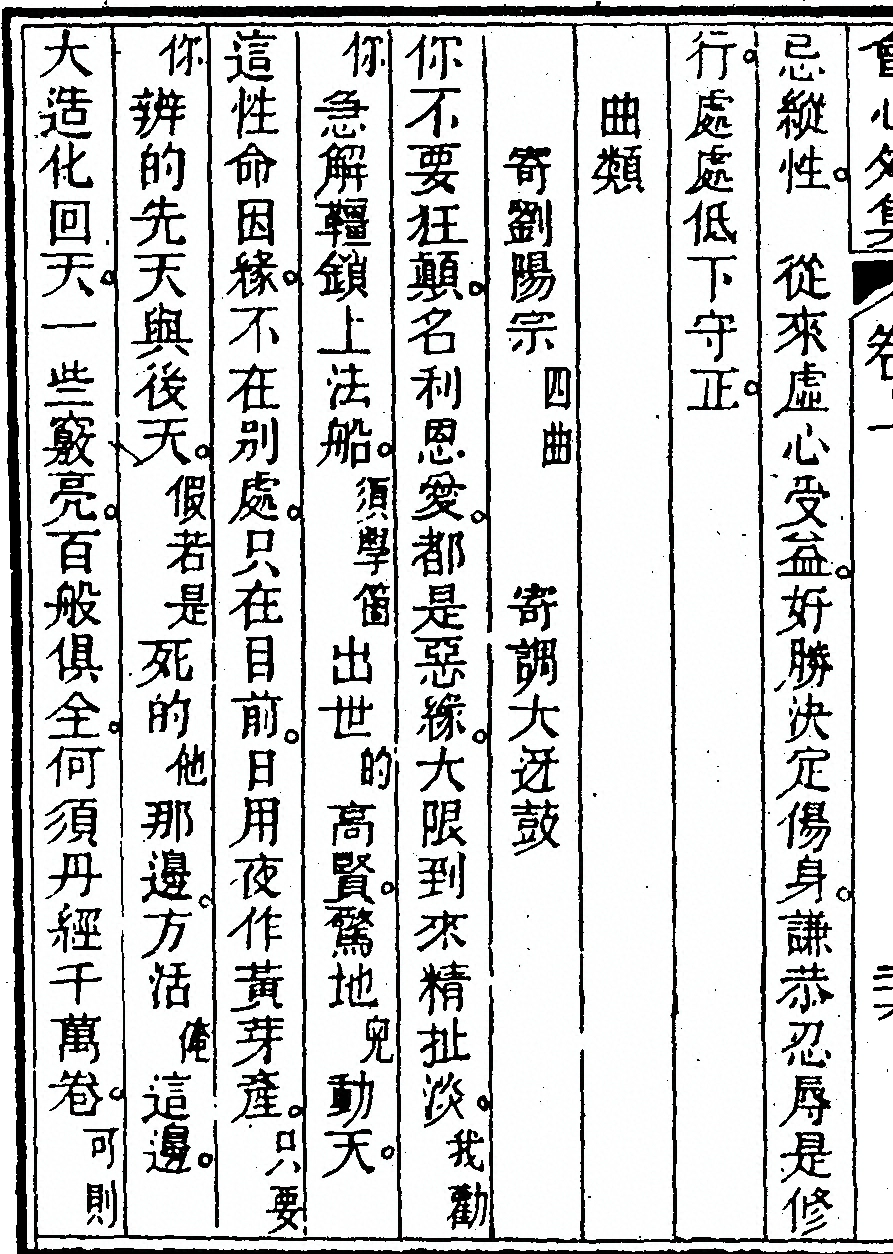 會心外集 卷一
忌縱性。 從來虛心受益。好勝決定傷身。謙恭忍辱是修
行。處處低下守正。
曲類
寄劉陽宗 四曲 寄調大迓鼓
你不要狂顛。名利恩愛。都是惡緣。大限到來精扯淡。我勸
你急解韁鎖上法船。須學箇出世的高賢。驚地兒動天。
這性命因緣。不在别處。只在目前。日用夜作黃芽產。只要
你辨的先天與後天。假若是死的他那邊。方活俺這邊。
大造化回天。一些竅亮。百般俱全。何須丹經千萬卷。可則